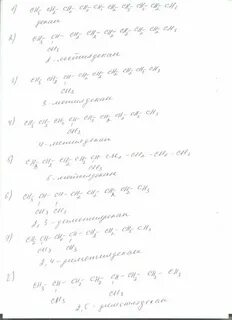 1) CH3 CH2 CH2 CH2 CH2 CH2 CH2 CH2 CH2 CH3
декан
2) CH3 CH - CH2 CH2 CH2 CH2 CH2 CH2 CH2 CH3
CH3
2-метилдекан
3) CH3 CH2 CH CH2 CH2 CH2 CH2 CH2 CH2 CH3
CH3
3-метилдекан
4) CH3 CH2 CH2 CH CH2 CH2 CH2 CH2 CH3
CH3
4-метилдекан
5) CH3 CH2 CH2 CH2 CH CH2 - CH2 - CH2 - CH3
5-метилдекан
6) CH3 CH - CH - CH2 CH2 CH2 CH2 CH3
CH3 CH3
2,3-диметилдекан
7) CH3 CH - CH2 - CH - CH2 CH2 CH2 CH3
CH3 CH3
2,4-диметилдекан
8) CH3 - CH - CH2 - CH2 - CH - CH2 - CH2 - CH3
CH3 CH3
2,5-диметилдекан